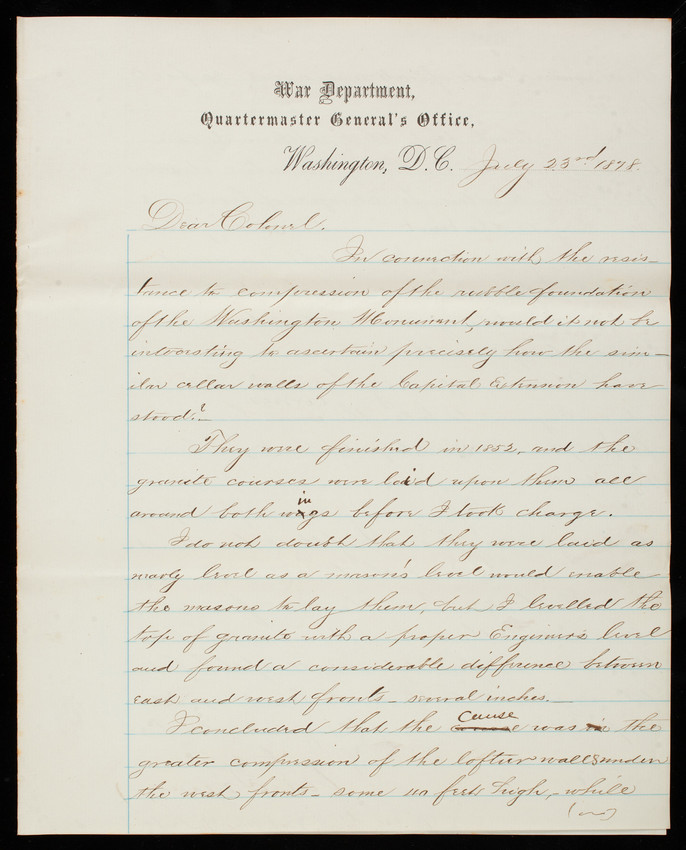 War Department,
Quartermaster General's Office,
Washington, D.C. July 23rd 1878.
Dear Colonel.
In connection with the resis-
tance to compression of the rubble foundation
of the Washington Monument, would it not be
interesting to ascertain precisely how the sim-
ilar cellar walls of the Capitol Extension have
stood?
They were finished in 1852, and the
granite courses were laid upon them all
in
around both wings before I took charge.
I do not doubt that they were laid as
nearly level as a mason's level would enable
the masons to lay them, but I levelled the
top of granite with a proper Engineers level
and found a considerable difference between
east and west fronts - several inches.
cause
I concluded that the was the
greater compression of the loftier walls under
the west fronts - some 40 feet high, while